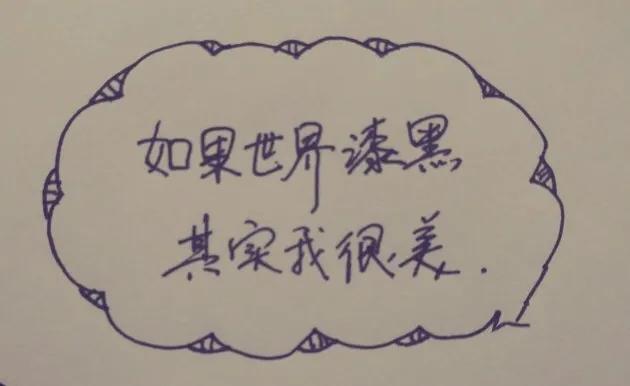 如果世界漆黑
其实我很美.